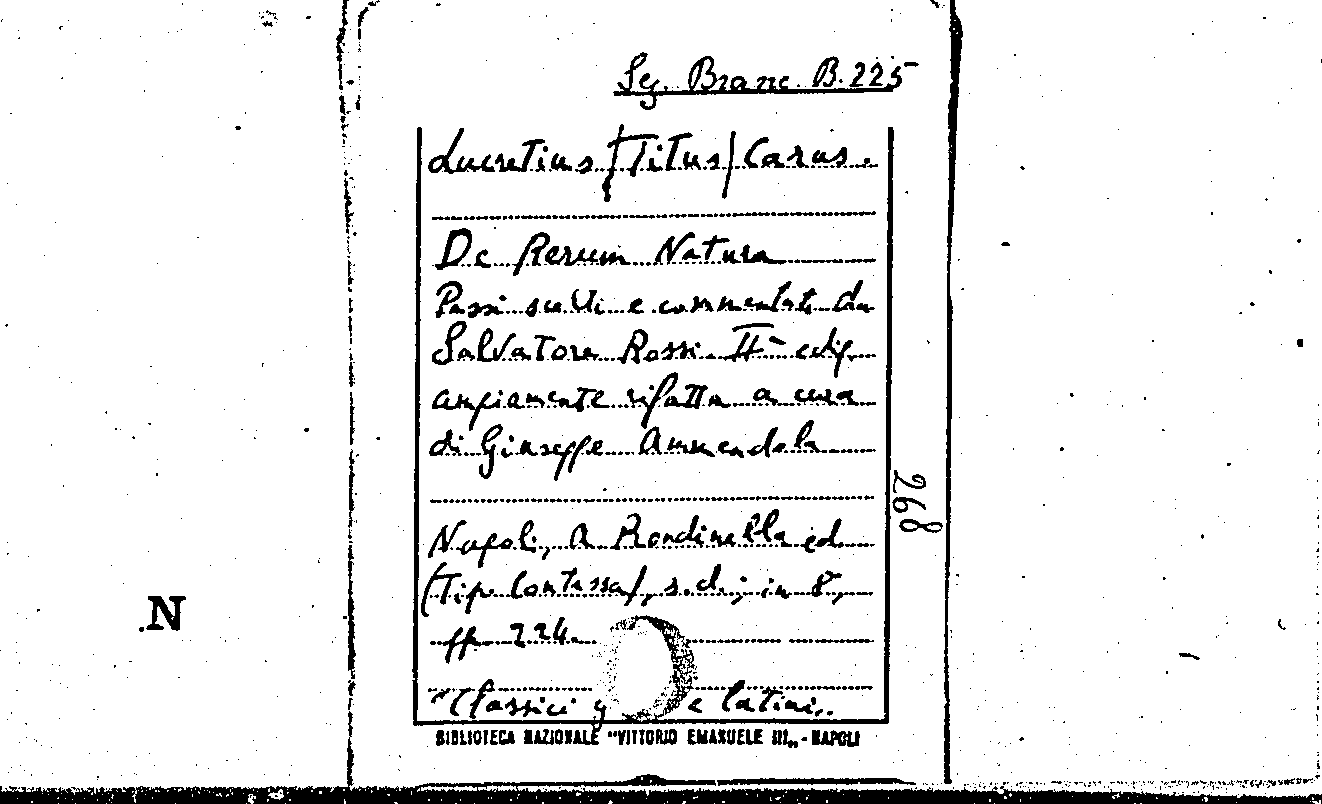 Sez. Branc. B. 225
Lucretius /Titus/ Carus.
De Rerum Natura
Passi scelti e commentati da
Salvatore Rossi. IIª ediz.
ampiamente rifatta a cura
di Giuseppe Ammendola
268
Napoli, A Rondinella ed.
(Tip. Contessa), s.d.; in 8°,
N
pp. 224.
"Classici g e latini„.
BIBLIOTECA NAZIONALE "VITTORIO EMANUELE III„ - NAPOLI